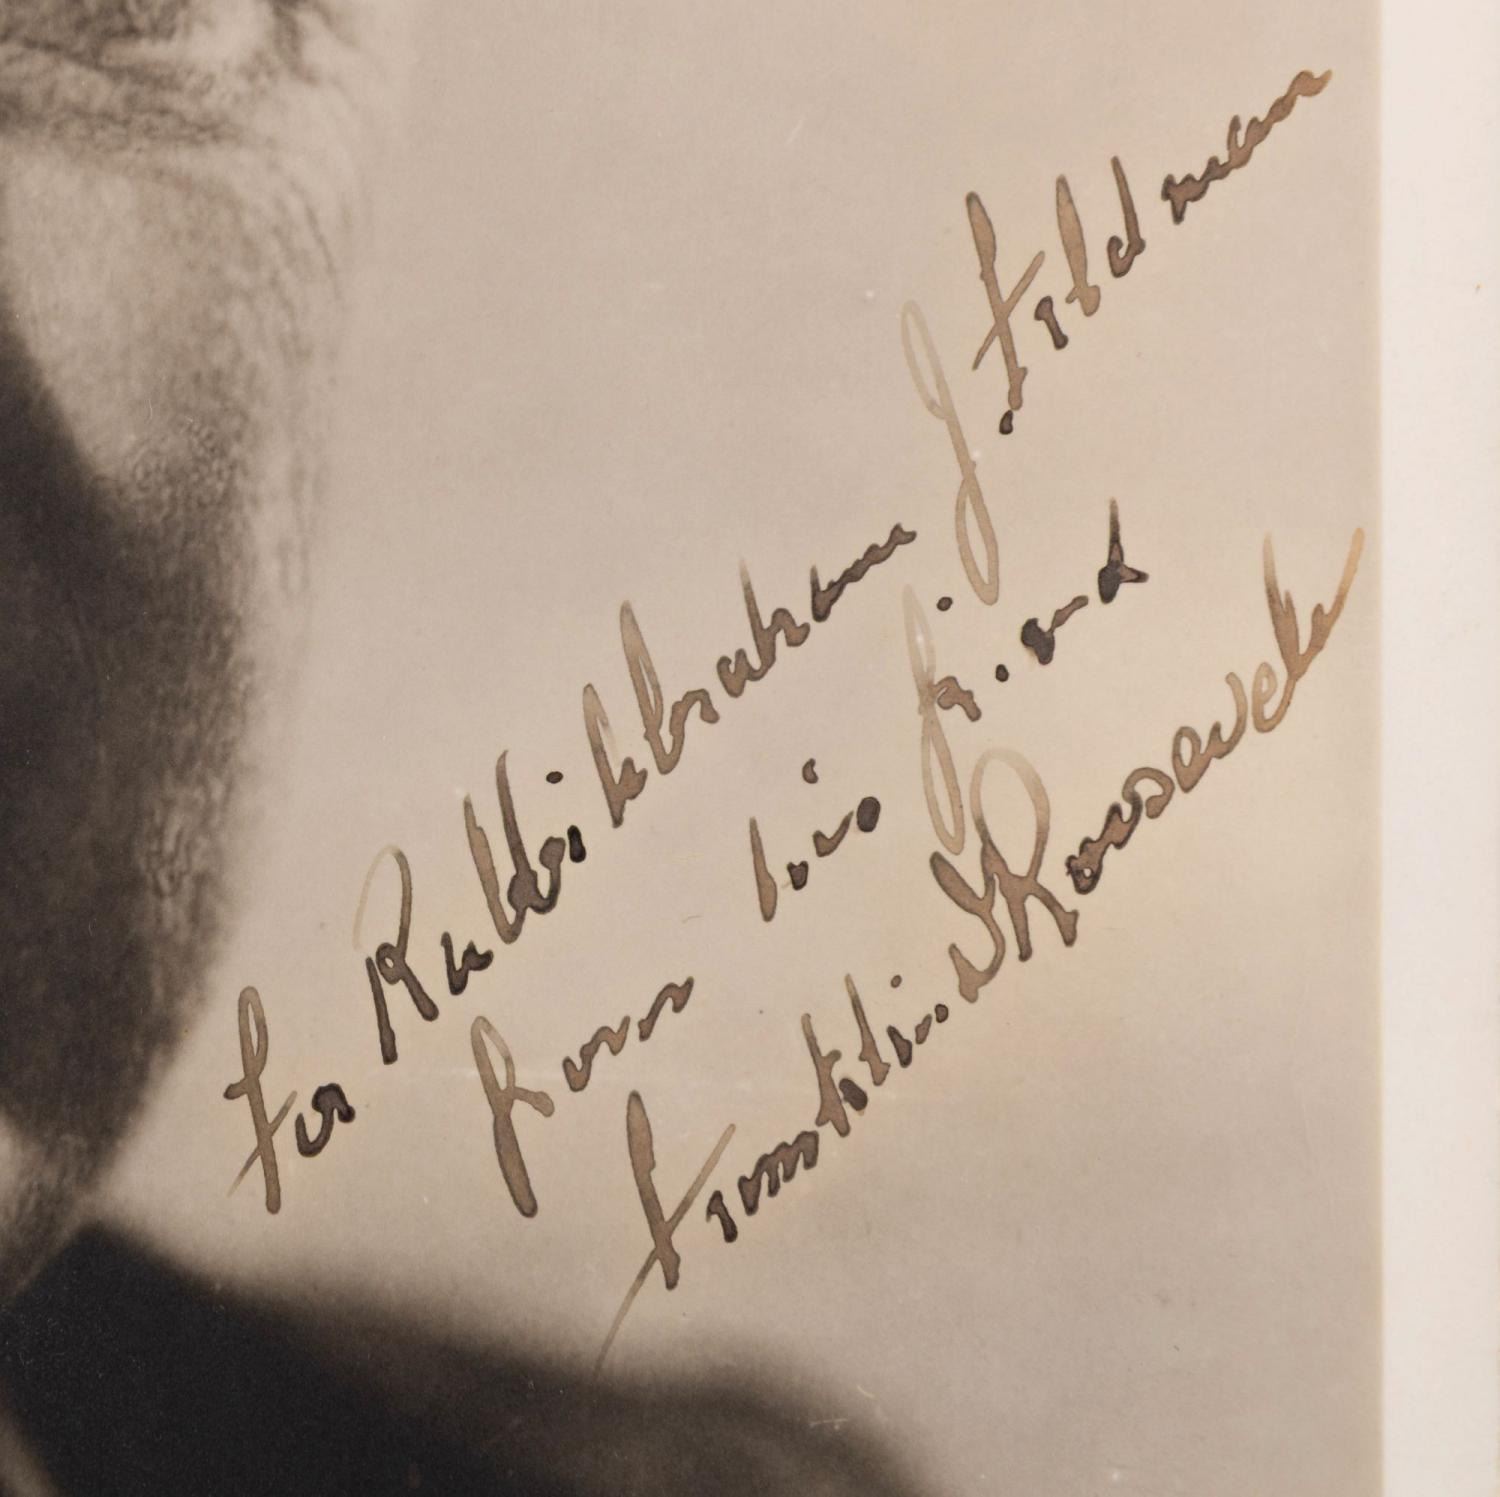 For Rabbi Abraham J Feldman
from his friend
Franklin D Roosevelt